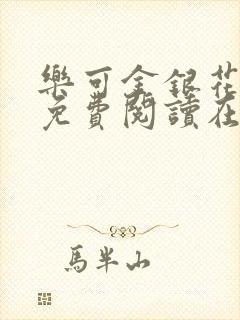 樂可金銀花
免費閱讀在
馬半山